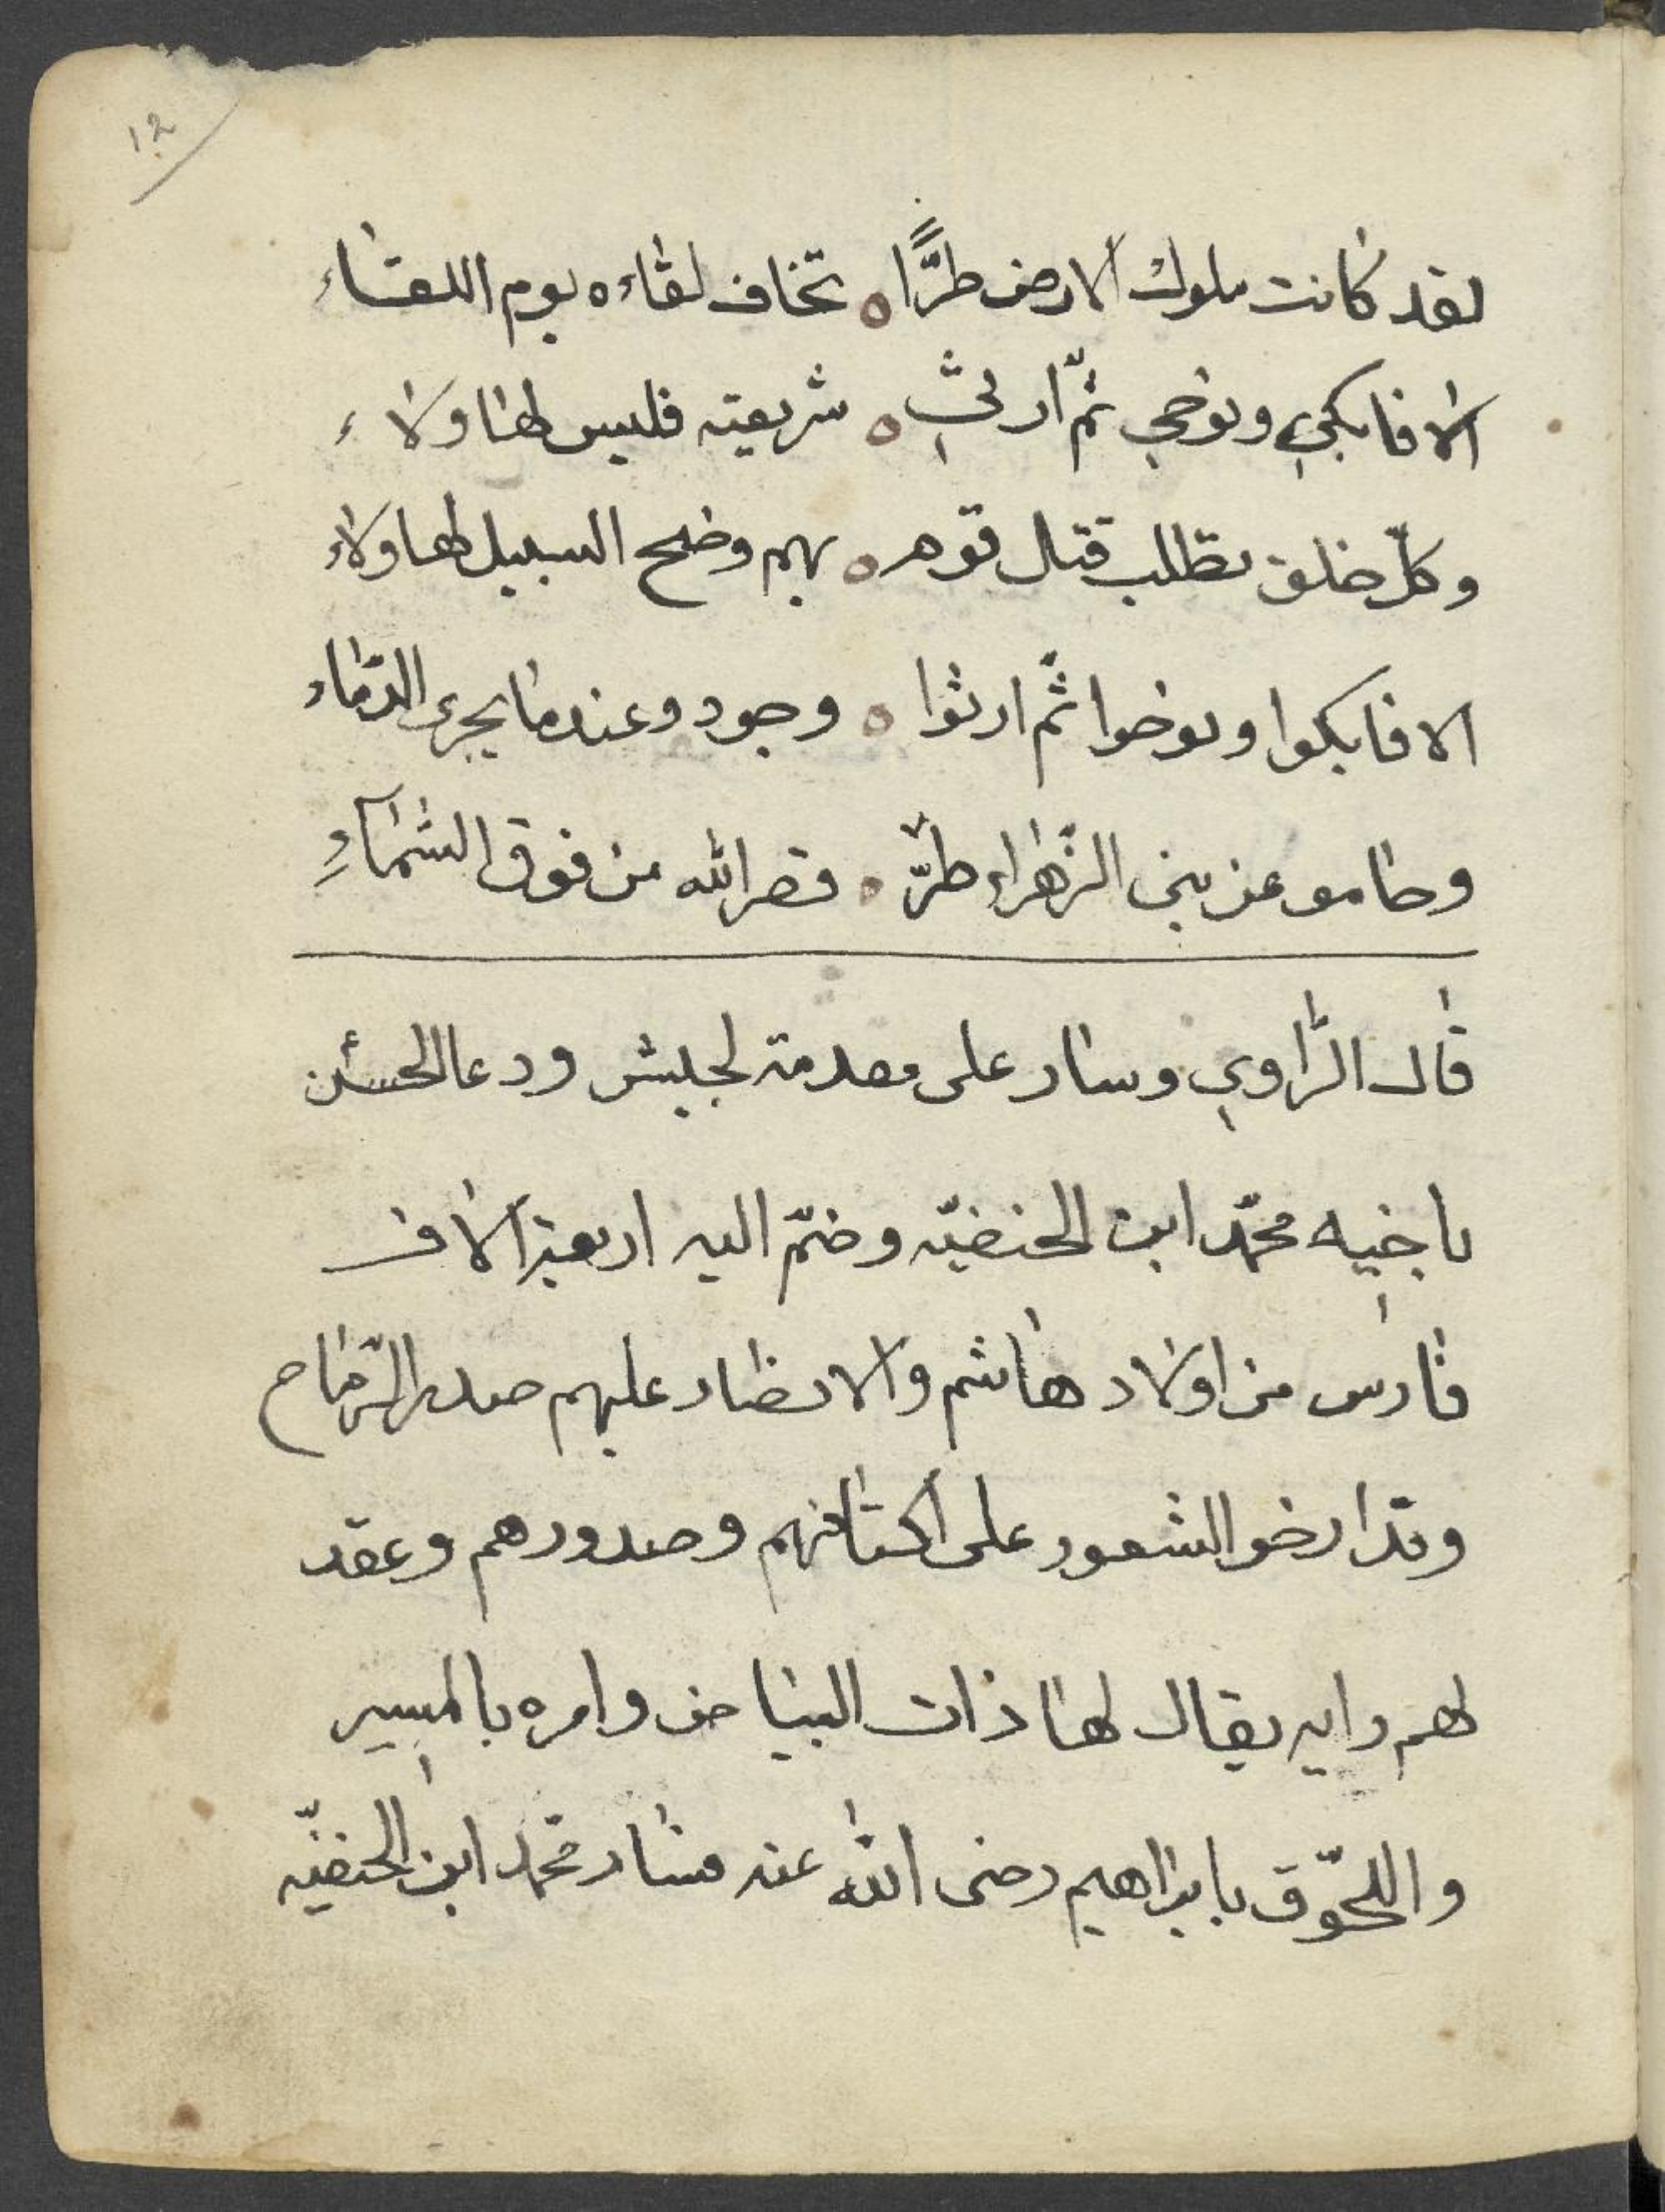 12
لقد كانت ملوك الارض طرًّا ه تخاف لقاءه يوم اللقاء
الا فابكي ونوحي ثمّ ارثي ه شريعته فليس لها ولاء
وكلّ خلق تطلب قتال قوم ه بهم وضح السبيل لها ولاء
الا فابكوا ونوحوا ثمّ ارثوا ه وجود وعندما يجرى الدّماء
وحامو عن بني الزّهراء طرّ ه فصر الله من فوق السّماءِ
قال الرّاوي وسار على مقدمة لجيش ودعا الحسن
باخيه محمّد ابن الحنفيّه وضمّ اليه اربعة آلاف
فارس من اولاد هاشم والانصار عليهم صدر الرّماح
وقد ارخو الشعور على اكتافهم وصدورهم وعقد
لهم رايه يقال لها ذات البياض وامره بالمسير
واللحّوق بابراهيم رضى الله عنه فسار محمّد ابن الحنفيّه